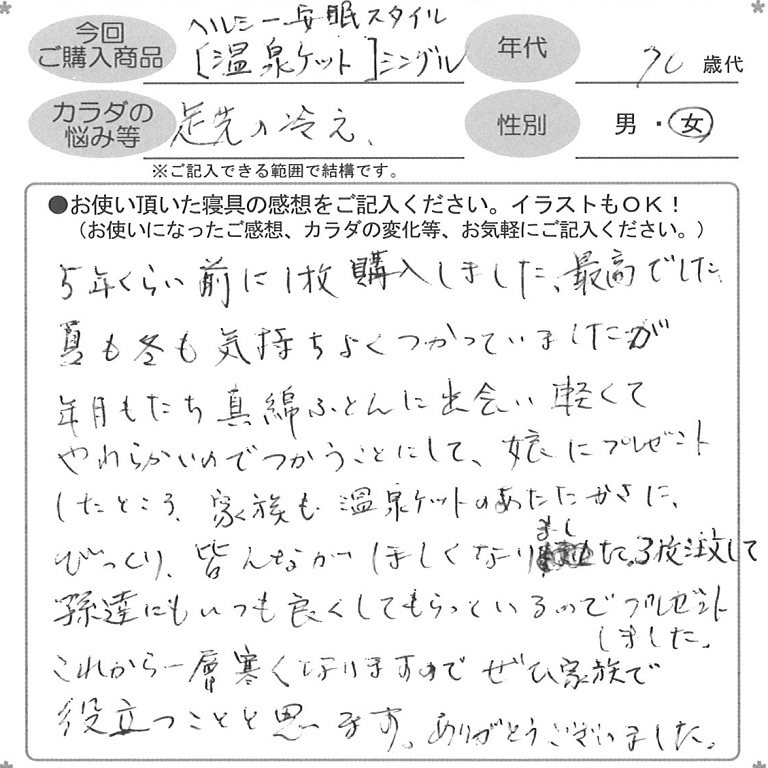 今回
ご購入商品
ヘルシー安眠スタイル
[温泉ケット]シングル
年代
70 歳代
カラダの
悩み等
足先の冷え、
性別
男・女
※ご記入できる範囲で結構です。
●お使い頂いた寝具の感想をご記入ください。イラストもOK!
(お使いになったご感想、カラダの変化等、お気軽にご記入ください。)
5年くらい前に1枚購入しました、最高でした
夏も冬も気持ちよくつかっていましたが
年月もたち真綿ふとんに出会い軽くて
やわらかいのでつかうことにして、娘にプレゼント
したところ、家族も温泉ケットのあたたかさに、
びっくり、皆んながほしくなりました。3枚注文して
孫達にもいつも良くしてもらっているのでプレゼント
しました。
これから一層寒くなりますのでぜひ家族で
役立つことと思います。ありがとうございました。